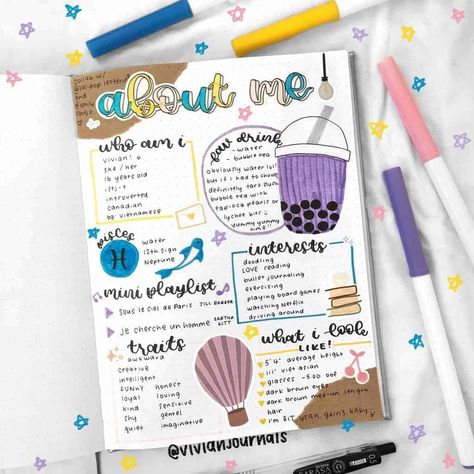 collab w/
@lollipop.letters
and
@spicy
about me
who am i
vivian!
she/her
16 years old
isfj-t
introverted
canadian
bg vietnamese
fav drink
- water
- bubble tea
obviously water is!
but if i had to choose
definitely taro slush
bubble tea with
tapioca pearls or
lychee bits
yummy yummy
time!!
pisces
water
12th sign
Neptune
interests
doodling
LOVE reading
bullet journaling
exercising
playing board games
watching Netflix
driving around
mini playlist
sous le ciel de Paris ZAZ
je cherche un homme EARTHA
KITT
traits
awkward
creative
intelligent
funny honest
loyal loving
kind sensitive
shy genuine
quiet imaginative
what i look
LIKE!
5'4" average height
lil' viet asian
glasses -5.00 oof
dark brown eyes
dark brown medium length
hair
@vivianjournals
SARASA
0.5